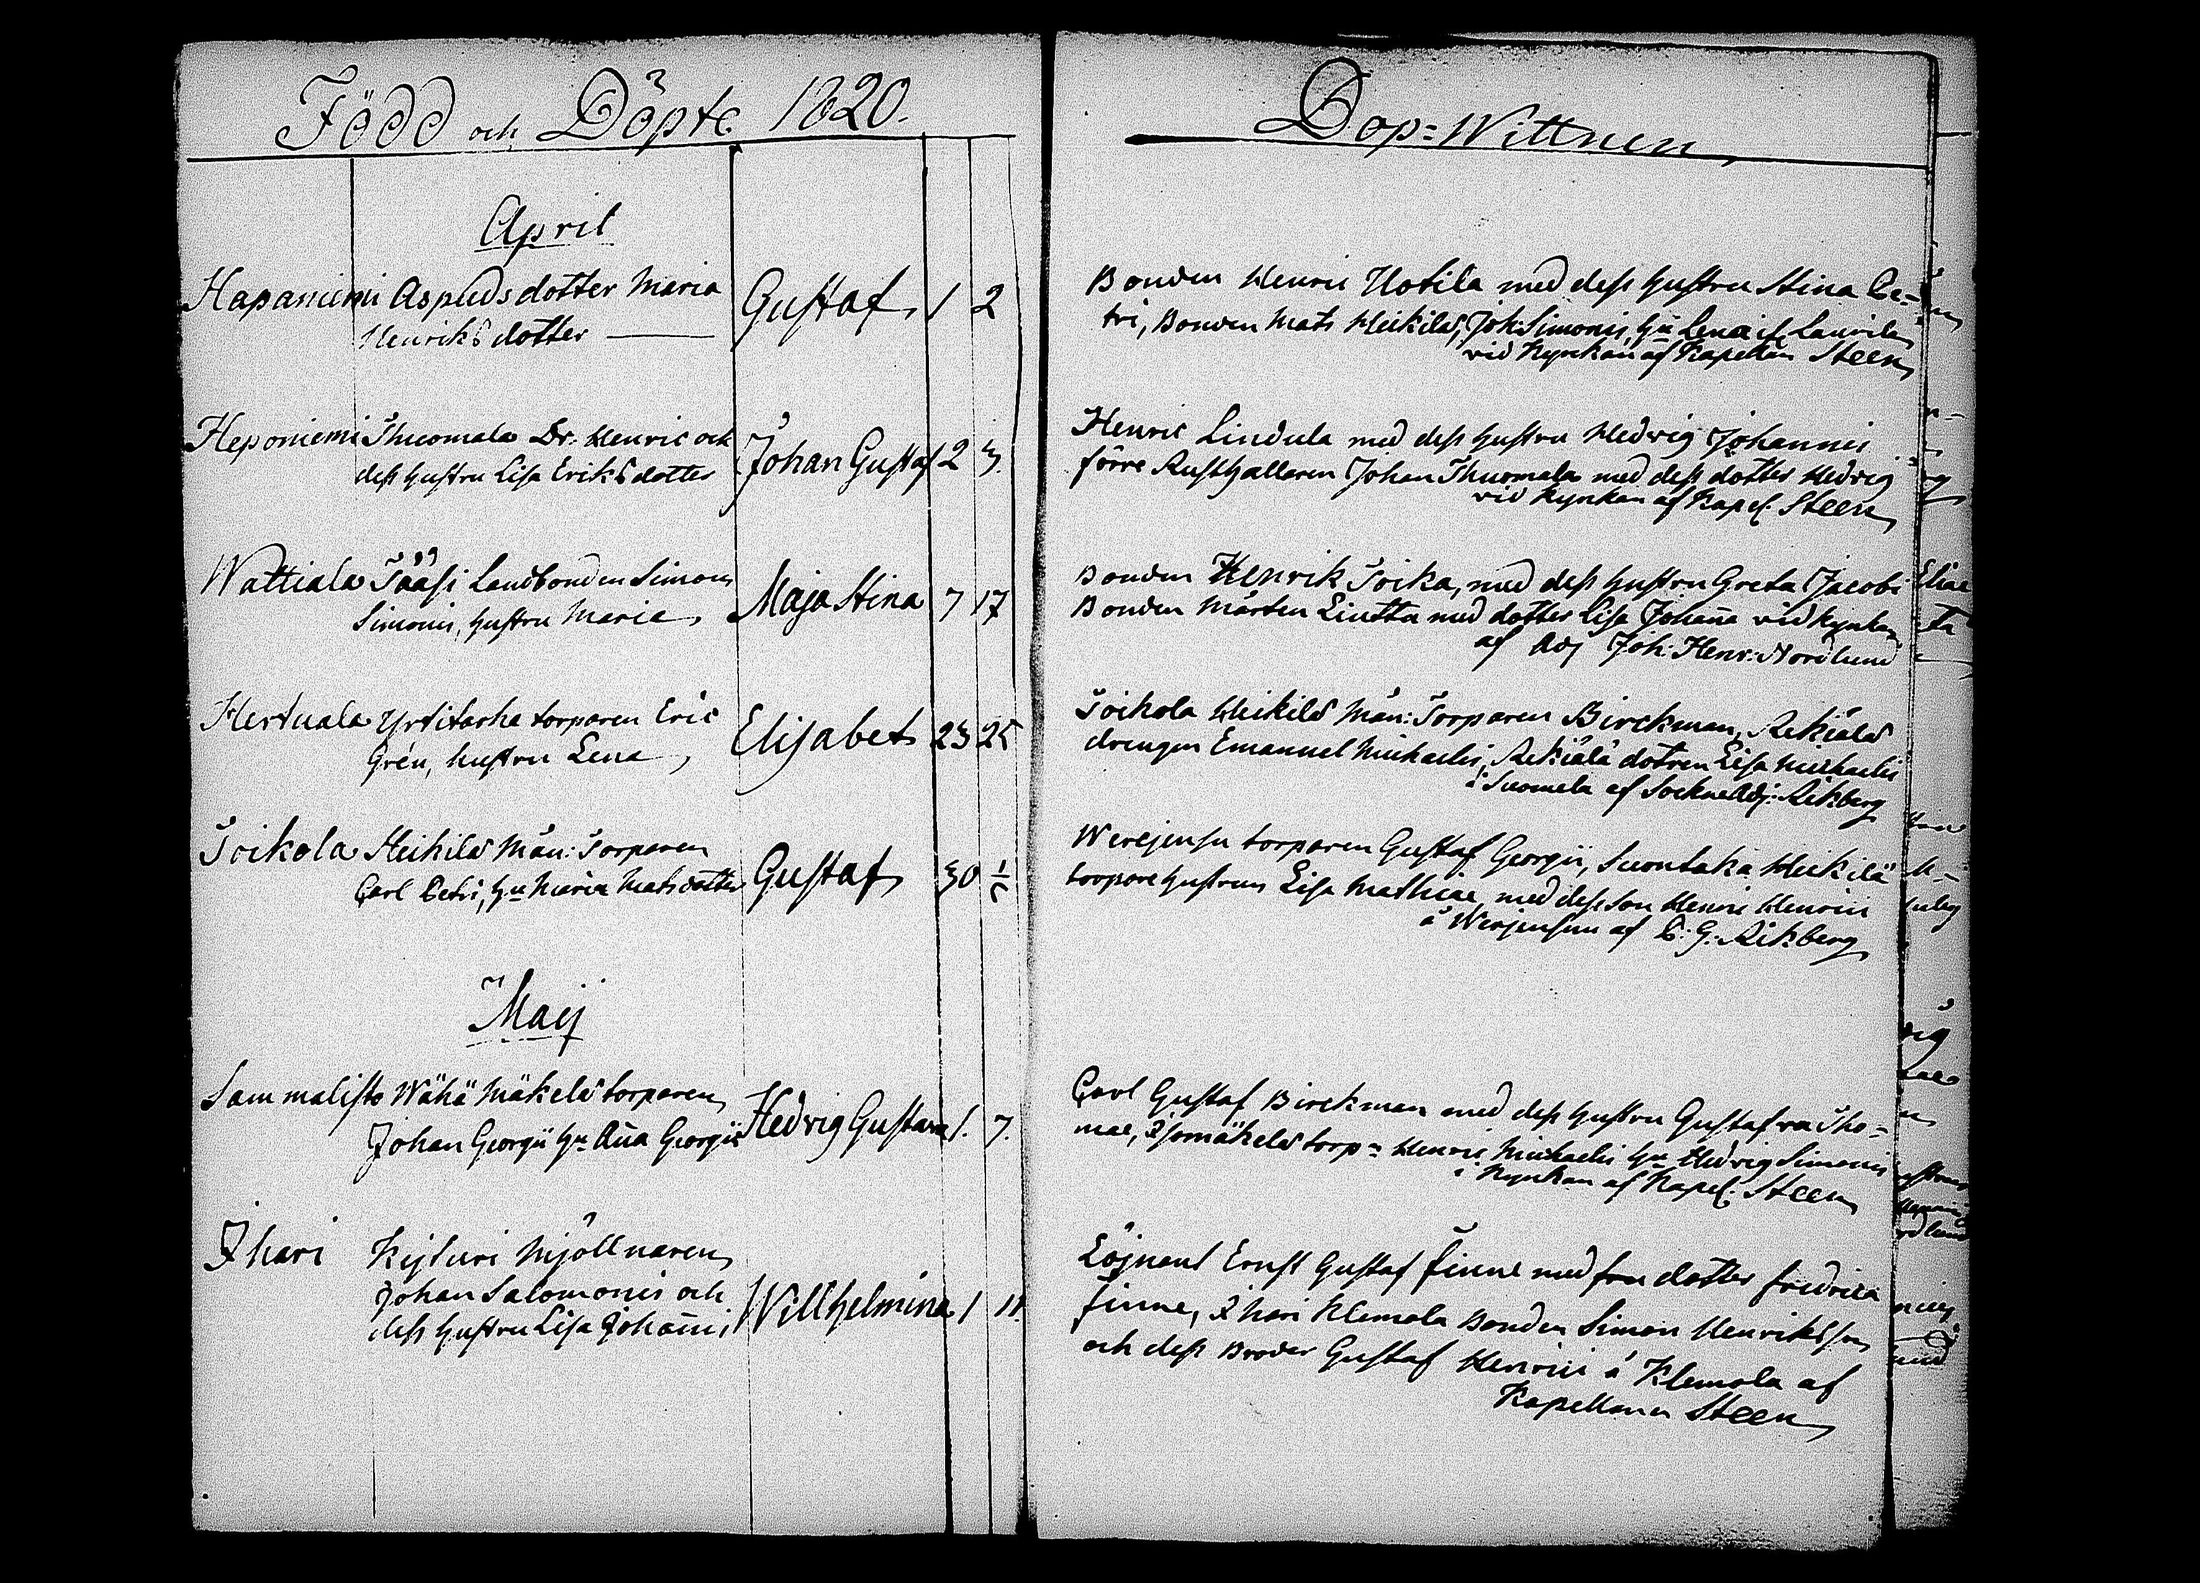 Född och Döpte 1820.
April
Hapaniemi Aspleds dotter Maria Gustaf 1 2
Henriks dotter
Heponiemi Thuomala Dr. Henric och Johan Gustaf 2 3.
dess hustru Lisa Eriks dotter
Wattiala Tääsi Landbonden Simon Maja Stina 7 17
Simonis, hustru Maria
Hertuala Yrtitarha torparen Eric Elisabet 23 25
Grén, hustru Lena
Toikola Heikilä Män: Torparen Gustaf 30 1/5
Carl Petri, Hu Maria Matsdotter
Maij
Sammalisto Wähä Mäkelä torparen Hedvig Gustava 1. 7.
Johan Georgii Hu Aña Georgii
Ihari Kyluri Mjöllnaren
Johan Salomonis och Willhelmina 1 11.
dess hustru Lisa Johañi
Dop=Wittnen
Bonden Henric Uotila med dess hustru Stina Pe-
tri, Bonden Mats Heikilä, Joh: Simonis, Hu Lena af Laurila
vid Kyrckan af Kapellan Steen
Henric Lindula med dess hustru Hedvig Johannis
förre Rusthallaren Johan Thuomala med dess dotter Hedvig
vid Kyrkan af Kapel. Steen
Bonden Henrik Toika, med dess hustru Greta Jacobi
Bonden Mårten Liutta med dotter Lisa Johana vid kyrkan
af Adj Joh: Henr: Nordlund
Toikola Heikilä Män: Torparen Birckman, Rekiälä
drengen Emanuel Michaelis, Rekiälä dotren Lisa Michaelis
i Suomela af Sockne Adj: Rikberg
Werejensu torparen Gustaf Georgii, Suontaka Heikilä
torpare hustrun Lisa Mathiae, med dess son Henric Henrici
å Werjensuu af C. G. Rikberg
Carl Gustaf Birckman med dess hustru Gustafva Tho=
mae, Isomäkelä torp= Henric Michaelis Hu Hedvig Simonis
i Kyrkan af Kapel. Steen
Löjnant Ernst Gustaf Finne med fru dotter Fredrica
Finne, Ihari Klemola Bonden Simon Henriksson
och dess Broder Gustaf Henrici å Klemola af
Kapellanen Steen